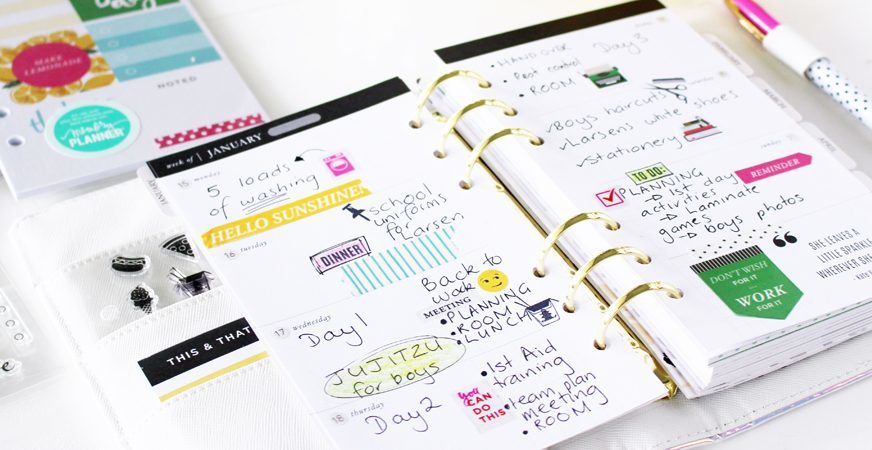 MAKE
LEMONADE
NOTED
memory
PLANNER
THIS & THAT
week of | JANUARY
JANUARY
15 monday
5 loads
of washing
HELLO SUNSHINE!
16 tuesday
school
uniforms
for Larsen
DINNER
Back to
work
MEETING
• PLANNING
• ROOM
• LUNCH
17 wednesday
Day 1
JUJITZU
for boys
18 thursday
Day 2
you
CAN DO
THIS
• 1st Aid
training
• team plan
meeting
• ROOM
• HAND OVER
Day 3
• Pest control
• ROOM
Boys haircuts
Larsens white shoes
Stationery
sunday
TO DO:
REMINDER
PLANNING
1st day
activities
Laminate
games
boys photos
DON'T WISH
FOR IT
WORK
FOR IT
SHE LEAVES A
LITTLE SPARKLE
WHEREVER SHE
MARCH
APRIL